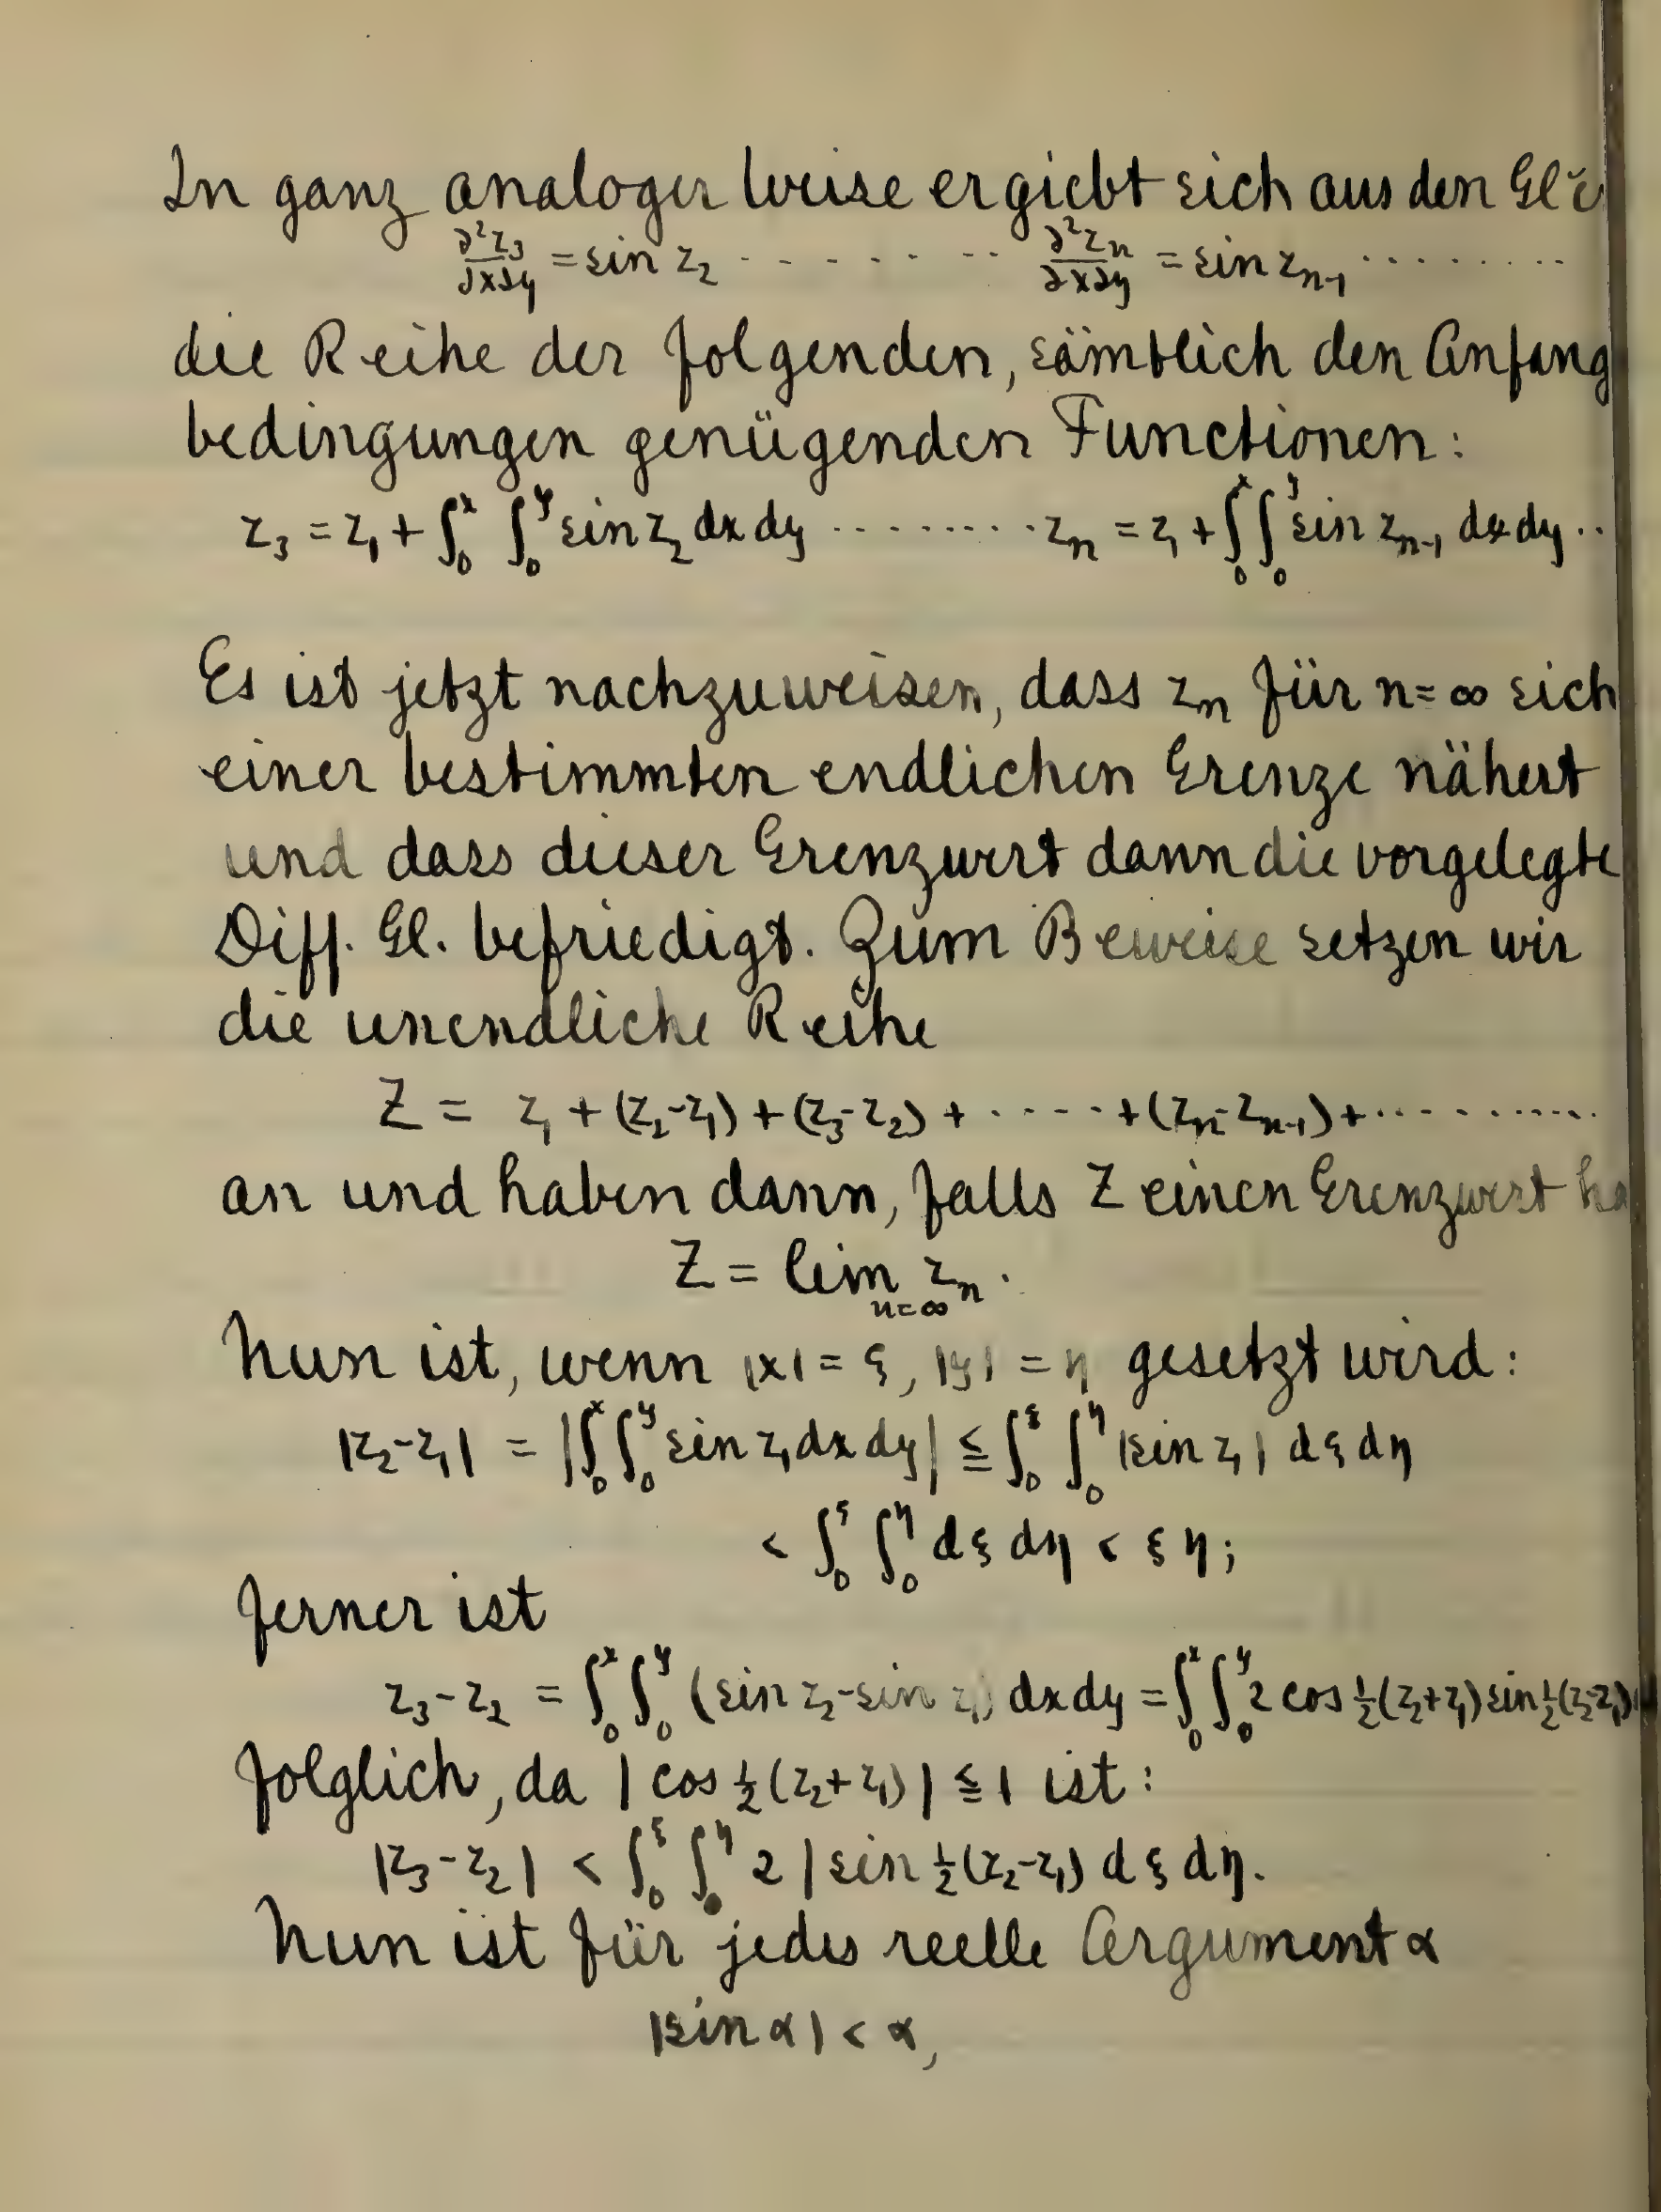 In ganz analoger Weise ergiebt sich aus den Gle
∂²z₃/∂x∂y = sin z₂ - - - - - - - - ∂²zₙ/∂x∂y = sin zₙ₋₁ . . . . . . . .
die Reihe der folgenden, sämtlich den Anfang
bedingungen genügenden Functionen:
z₃ = z₁ + ∫₀ˣ ∫₀ʸ sin z₂ dx dy . . . . . . . . . zₙ = z₁ + ∫₀ˣ ∫₀ʸ sin zₙ₋₁ dx dy . .
Es ist jetzt nachzuweisen, dass zₙ für n = ∞ sich
einer bestimmten endlichen Grenze nähert
und dass dieser Grenzwert dann die vorgelegte
Diff. Gl. befriedigt. Zum Beweise setzen wir
die unendliche Reihe
Z = z₁ + (z₂-z₁) + (z₃-z₂) + . . . . . + (zₙ-zₙ₋₁) + . . . . . . . . . .
an und haben dann, falls Z einen Grenzwert ha
Z = lim zₙ .
n=∞
Nun ist, wenn |x| = ξ, |y| = η gesetzt wird:
|z₂-z₁| = |∫₀ˣ ∫₀ʸ sin z₁ dx dy| ≦ ∫₀^ξ ∫₀^η |sin z₁| dξ dη
< ∫₀^ξ ∫₀^η dξ dη < ξ η;
ferner ist
z₃-z₂ = ∫₀ˣ ∫₀ʸ (sin z₂-sin z₁) dx dy = ∫₀ˣ ∫₀ʸ 2 cos ½(z₂+z₁) sin ½(z₂-z₁)
folglich, da | cos ½ (z₂+z₁) | ≦ 1 ist:
|z₃-z₂| < ∫₀^ξ ∫₀^η 2 | sin ½ (z₂-z₁) dξ dη.
Nun ist für jedes reelle Argument α
|sin α| < α,